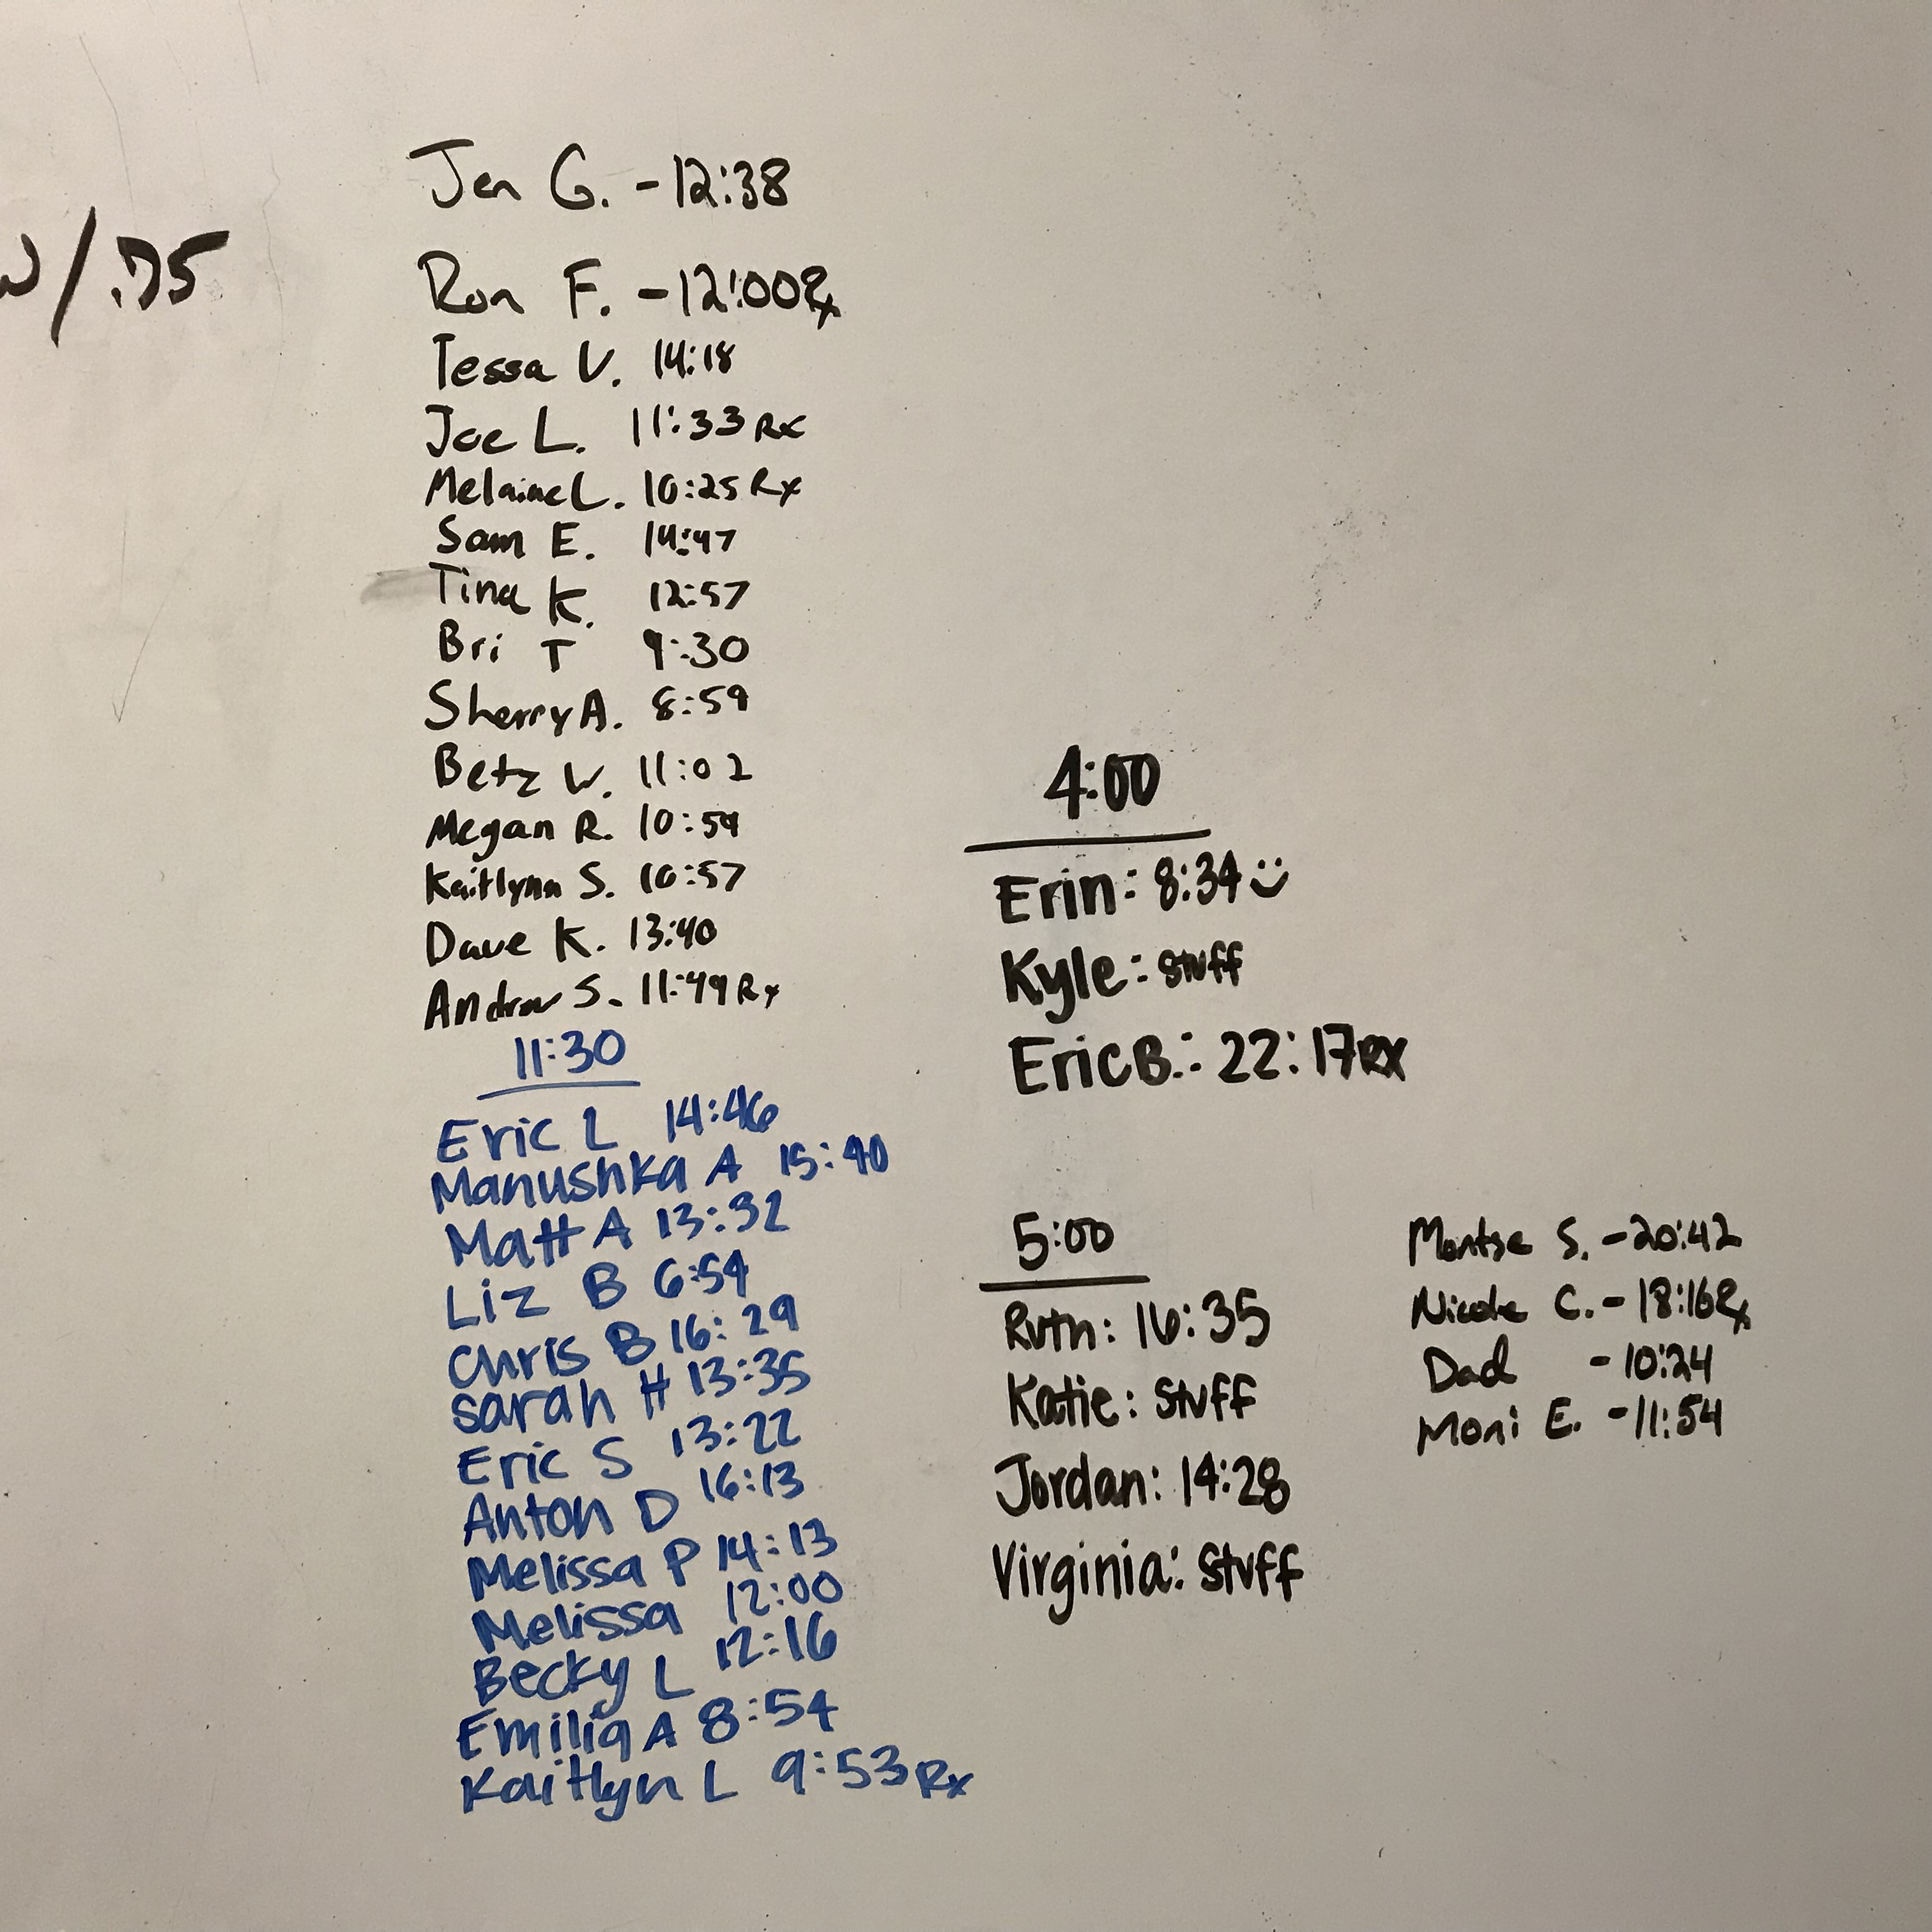 w/.75
Jen G. - 12:38
Ron F. - 12:00 Rx
Tessa V. 14:18
Joe L. 11:33 Rx
Melaine L. 10:25 Rx
Sam E. 14:47
Tina K. 12:57
Bri T 9:30
Sherry A. 8:59
Betz W. 11:02
Megan R. 10:59
Kaitlynn S. 10:57
Dave K. 13:40
Andrew S. 11:49 Rx
11:30
Eric L 14:46
Manushka A 15:40
Matt A 13:32
Liz B 6:54
Chris B 16:29
Sarah H 13:35
Eric S 13:22
Anton D 16:13
Melissa P 14:13
Melissa 12:00
Becky L 12:16
Emilia A 8:54
Kaitlyn L 9:53 Rx
4:00
Erin: 8:34 :)
Kyle: stuff
Eric B.: 22:17 RX
5:00
Ruth: 16:35
Katie: Stuff
Jordan: 14:28
Virginia: Stuff
Montse S. - 20:42
Nicole C. - 18:16 Rx
Dad - 10:24
Moni E. - 11:54